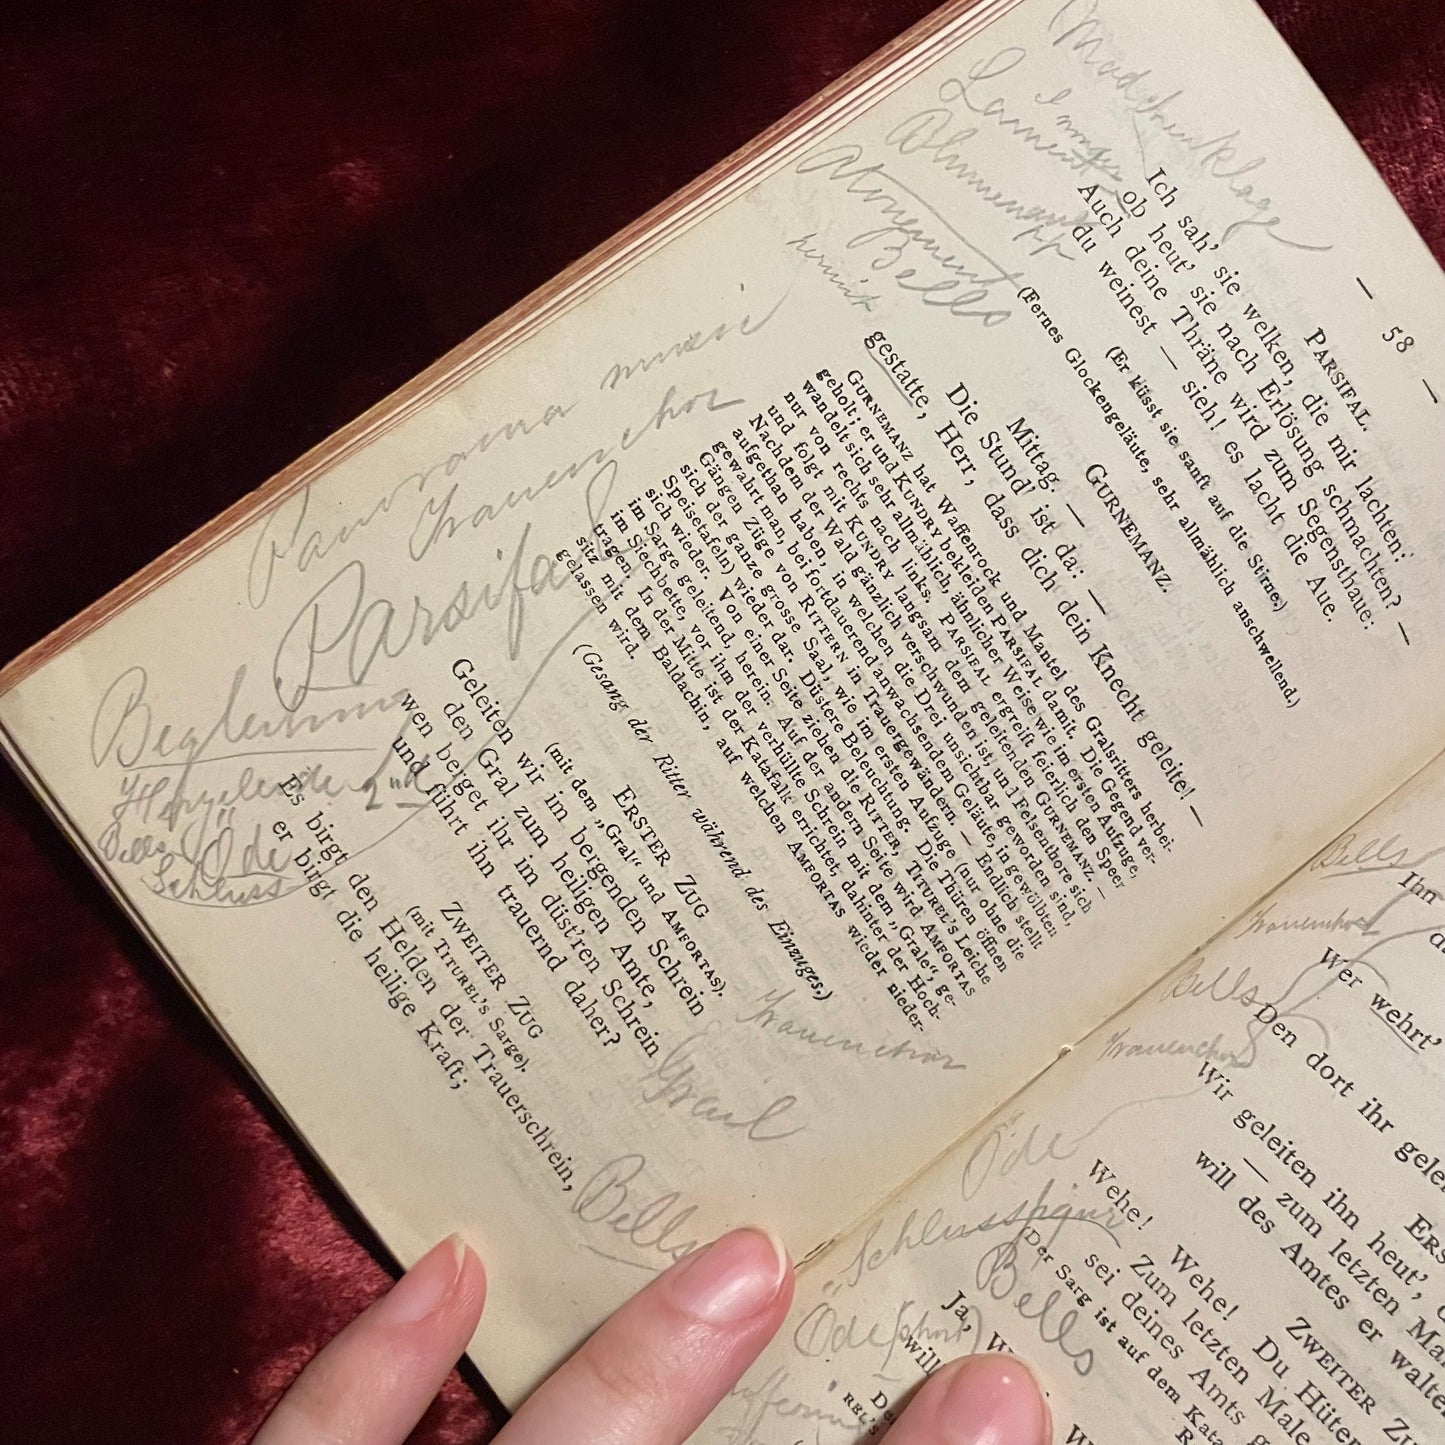 — 58 —
PARSIFAL.
Ich sah' sie welken, die mir lachten:
ob heut' sie nach Erlösung schmachten? —
Auch deine Thräne wird zum Segensthaue:
du weinest — sieh! es lacht die Aue.
(Er küsst sie sanft auf die Stirne.)
(Fernes Glockengeläute, sehr allmählich anschwellend.)
GURNEMANZ.
Mittag. —
Die Stund' ist da: —
gestatte, Herr, dass dich dein Knecht geleite! —
GURNEMANZ hat Waffenrock und Mantel des Gralsritters herbei-
geholt; er und KUNDRY bekleiden PARSIFAL damit. Die Gegend ver-
wandelt sich sehr allmählich, ähnlicher Weise wie im ersten Aufzuge,
nur von rechts nach links. PARSIFAL ergreift feierlich den Speer
und folgt mit KUNDRY langsam dem geleitenden GURNEMANZ. —
Nachdem der Wald gänzlich verschwunden ist, und Felsenthore sich
aufgethan haben, in welchen die Drei unsichtbar geworden sind,
gewahrt man, bei fortdauernd anwachsendem Geläute, in gewölbten
Gängen Züge von RITTERN in Trauergewändern. — Endlich stellt
sich der ganze grosse Saal, wie im ersten Aufzuge (nur ohne die
Speisetafeln) wieder dar. Düstere Beleuchtung. Die Thüren öffnen
sich wieder. Von einer Seite ziehen die RITTER, TITUREL'S Leiche
im Sarge geleitend, herein. Auf der andern Seite wird AMFORTAS
im Siechbette, vor ihm der verhüllte Schrein mit dem „Grale“, ge-
tragen. In der Mitte ist der Katafalk errichtet, dahinter der Hoch-
sitz mit dem Baldachin, auf welchen AMFORTAS wieder nieder-
gelassen wird.
(Gesang der Ritter während des Einzuges.)
ERSTER ZUG
(mit dem „Gral“ und AMFORTAS).
Geleiten wir im bergenden Schrein
den Gral zum heiligen Amte,
wen berget ihr im düst'ren Schrein
und führt ihn trauernd daher?
ZWEITER ZUG
(mit TITUREL'S Sarge).
Es birgt den Helden der Trauerschrein,
er birgt die heilige Kraft;
Lament
Atonement
Bells
Panorama
Frauenchor
Parsifal
2nd
Herzeleide
Bells
"Öde"
Schluss
Frauenchor
Graul
Bells
Bells
Ihn
Frauenchor
Wer wehrt'
Bells
Den dort ihr gelei
Frauenchor
ERS
Wir geleiten ihn heut',
— zum letzten Ma
will des Amtes er walte
ZWEITER ZU
Öde
Wehe! Wehe! Du Hüter
Zum letzten Male
sei deines Amts
"Schlussfigur
Bells
(Der Sarg ist auf dem Kata
Öde (short)
Ja,
will